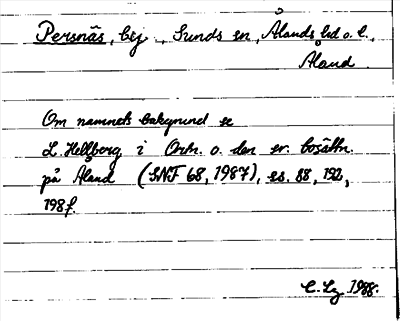 Persnäs, by , Sunds sn, Ålands hd o. l.,
Åland.
Om namnets bakgrund se
L. Hellberg i Ortn. o. den sv. bosättn.
på Åland (SNF 68, 1987), ss. 88, 192,
198 f.
C. Lg 1988.